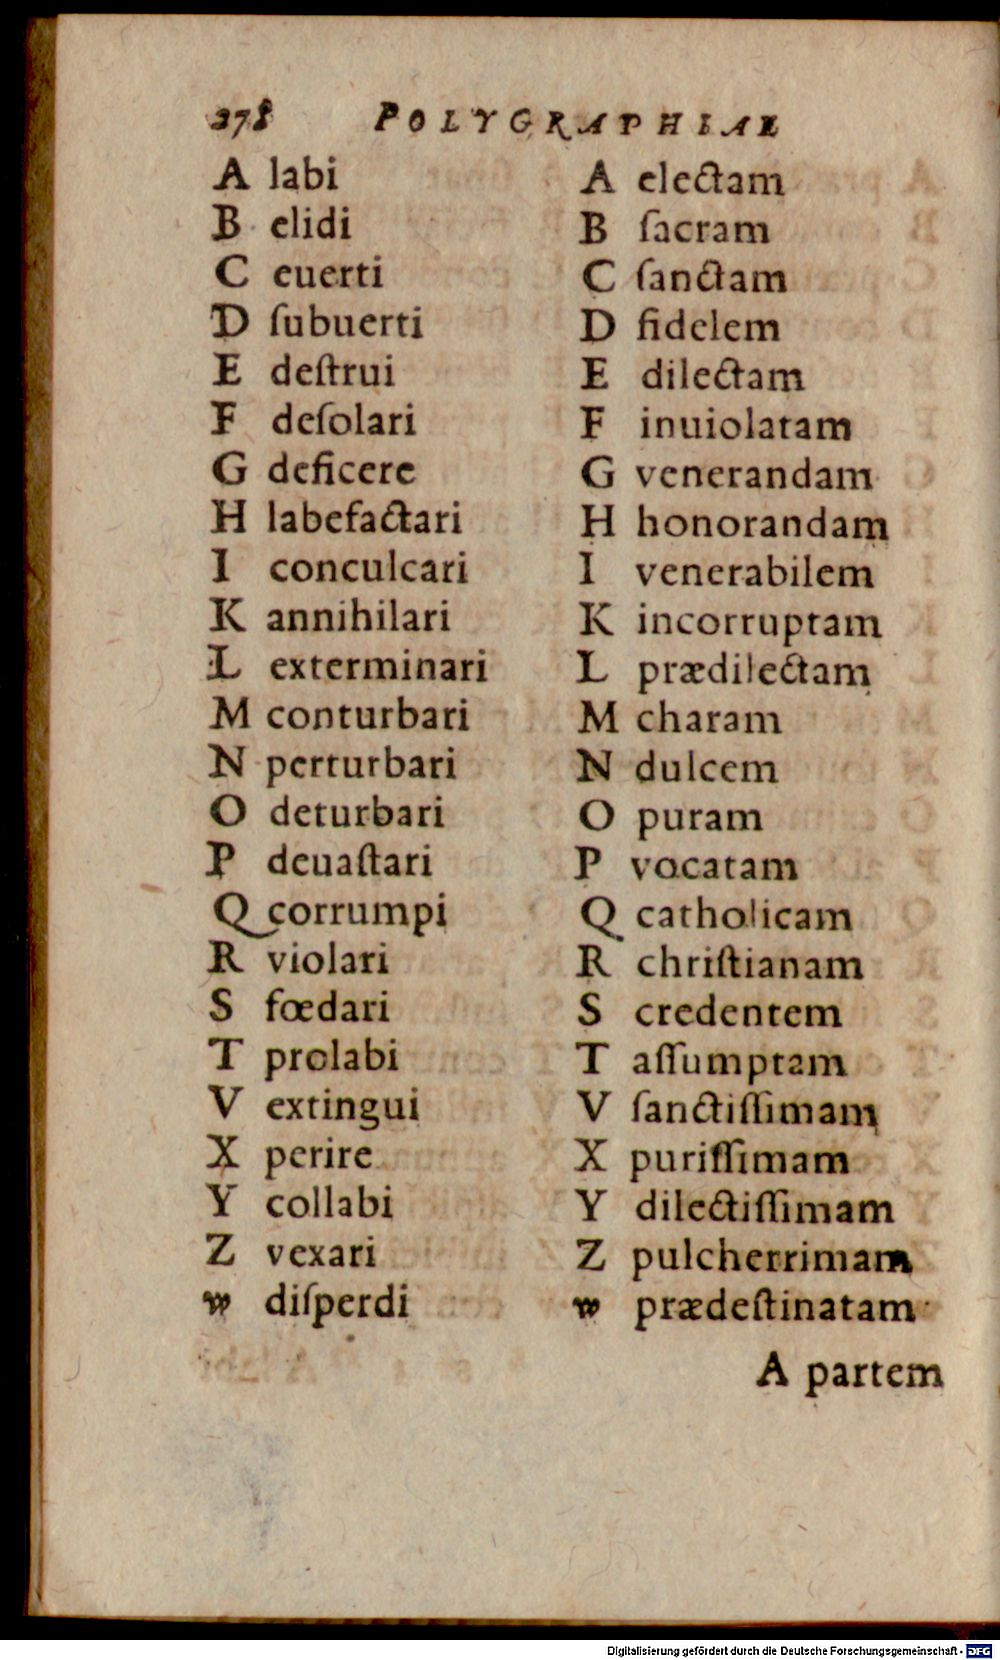 278 POLYGRAPHIAE
A labi
B elidi
C euerti
D ſubuerti
E deſtrui
F deſolari
G deficere
H labefactari
I conculcari
K annihilari
L exterminari
M conturbari
N perturbari
O deturbari
P deuaſtari
Q corrumpi
R violari
S fœdari
T prolabi
V extingui
X perire
Y collabi
Z vexari
w diſperdi
A electam
B ſacram
C ſanctam
D fidelem
E dilectam
F inuiolatam
G venerandam
H honorandam
I venerabilem
K incorruptam
L prædilectam
M charam
N dulcem
O puram
P vocatam
Q catholicam
R chriſtianam
S credentem
T aſſumptam
V ſanctiſſimam
X puriſſimam
Y dilectiſſimam
Z pulcherrimam
w prædeſtinatam
A partem
Digitalisierung gefördert durch die Deutsche Forschungsgemeinschaft - DFG